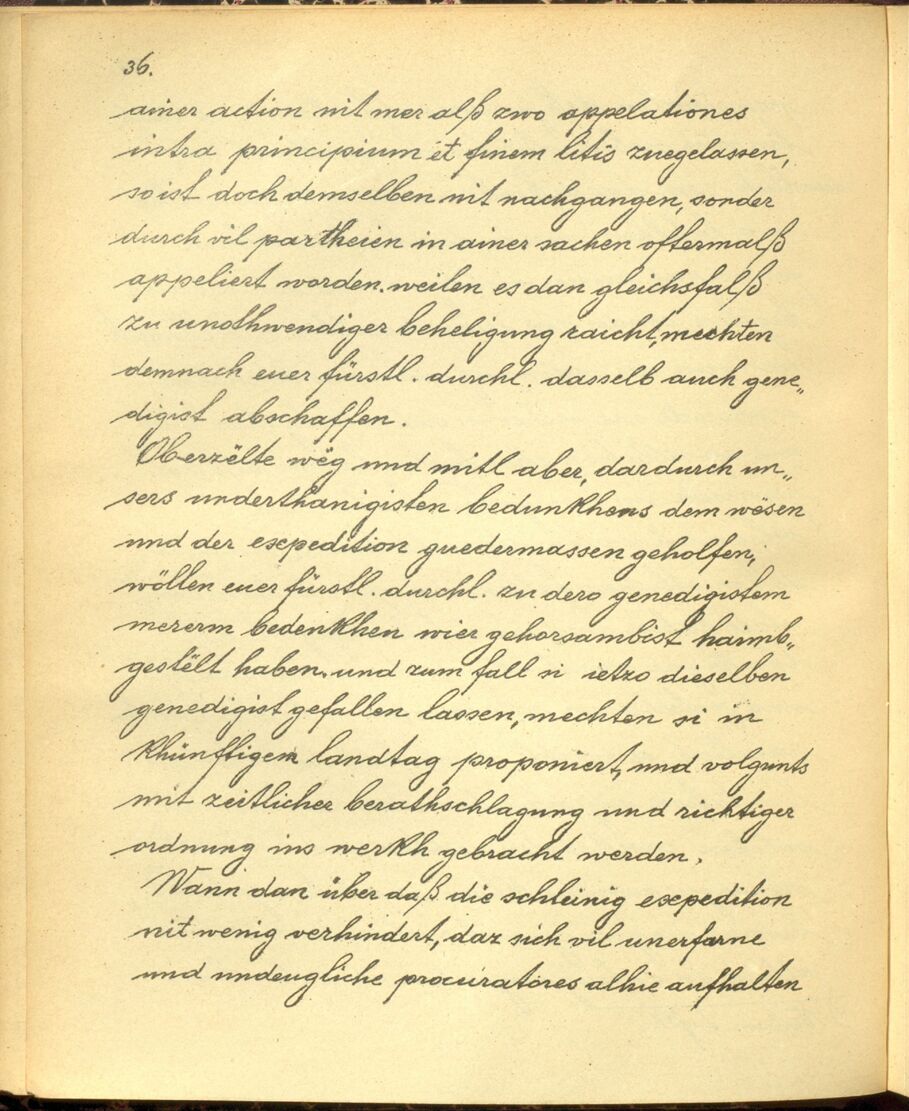 36.
ainer action nit mer alß zwo appelationes
intra principium et finem litis zuegelassen,
so ist doch demselben nit nachgangen, sonder
durch vil partheien in ainer sachen oftermalß
appeliert worden. weilen es dan gleichsfalß
zu unothwendiger beheligung raicht, mechten
demnach euer fürstl. durchl. dasselb auch gene„
digist abschaffen.
Oberzëlte wëg und mitl aber, dardurch un„
sers underthanigisten bedunkhens dem wësen
und der expedition guedermassen geholfen,
wöllen euer fürstl. durchl. zu dero genedigistem
mererm bedenkhen wier gehorsambist haimb„
gestëlt haben. und zum fall si ietzo dieselben
genedigist gefallen lassen, mechten si in
khünfftigem landtag proponiert, und volgunts
mit zeitlicher berathschlagung und richtiger
ordnung ins werkh gebracht werden.
Wann dan über daß die schleinig expedition
nit wenig verhindert, daz sich vil unerfarne
und undeugliche procuratores alhie aufhalten